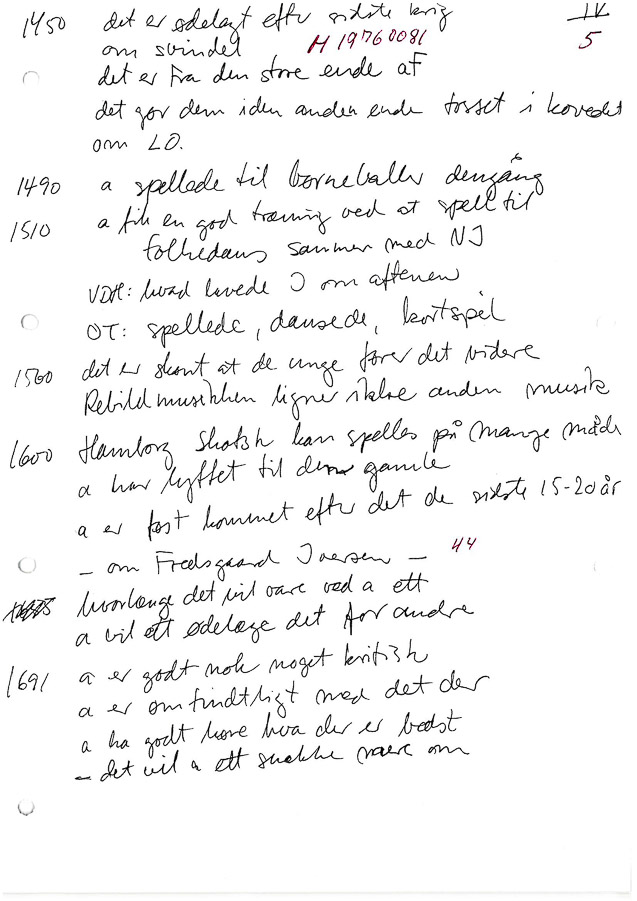 1450 det er ødelagt efter sidste krig
IV
om svindel H 19760081
5
det er fra den store ende af
det gør dem i den anden ende tosset i hovedet
om LO.
1490 a spellede til børneballer dengång
1510 a fik en god træning ved at spell til
folkedans sammen med NJ
VDH: hvad lavede I om aftenen
OT: spellede, dansede, kortspel
1560 det er skønt at de unge fører det videre
Rebildmusikken ligner ikke anden musik
1600 Hamborg Skotsk kan spelles på mange måde
a har lyttet til dem gamle
a er først kommet efter det de sidste 15-20 år
- om Fredsgaard Iversen - 44
hvorlænge det vil vare ved a ett
a vil ett ødelæge det for andre
1691 a er godt nok noget kritisk
a er omfindtligt med det der
a ha godt høre hva der er bedst
- det vil a ett snakke mere om